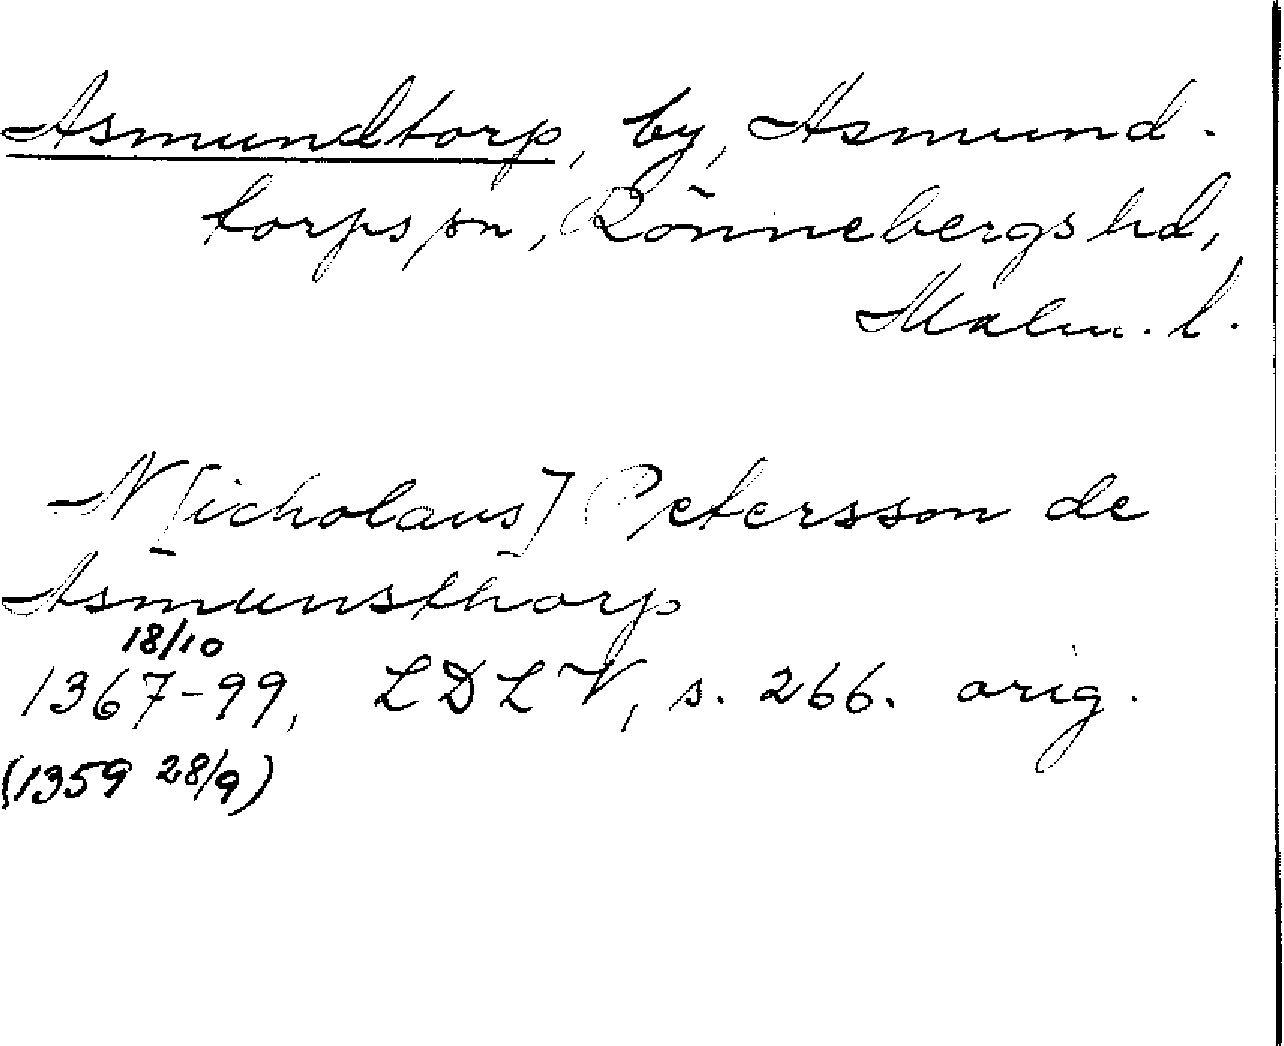 Asmundtorp, by, Asmund-
torps sn, Rönnebergs hd,
Malm. l.
N[icholaus] Petersson de
Asmunsthorp
18/10
1367-99, LDLV, s. 266. orig.
(1359 28/9)